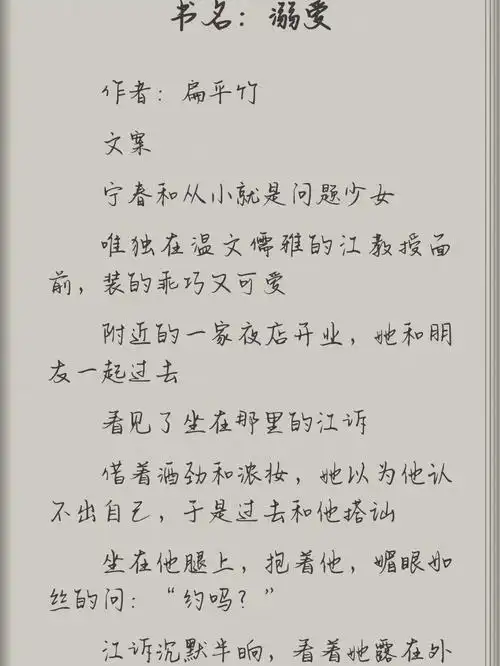 书名：溺爱
作者：扁平竹
文案
宁春和从小就是问题少女
唯独在温文儒雅的江教授面
前，装的乖巧又可爱
附近的一家夜店开业，她和朋
友一起过去
看见了坐在那里的江诉
借着酒劲和浓妆，她以为他认
不出自己，于是过去和他搭讪
坐在他腿上，抱着他，媚眼如
丝的问：“约吗？”
江诉沉默半晌，看着她露在外